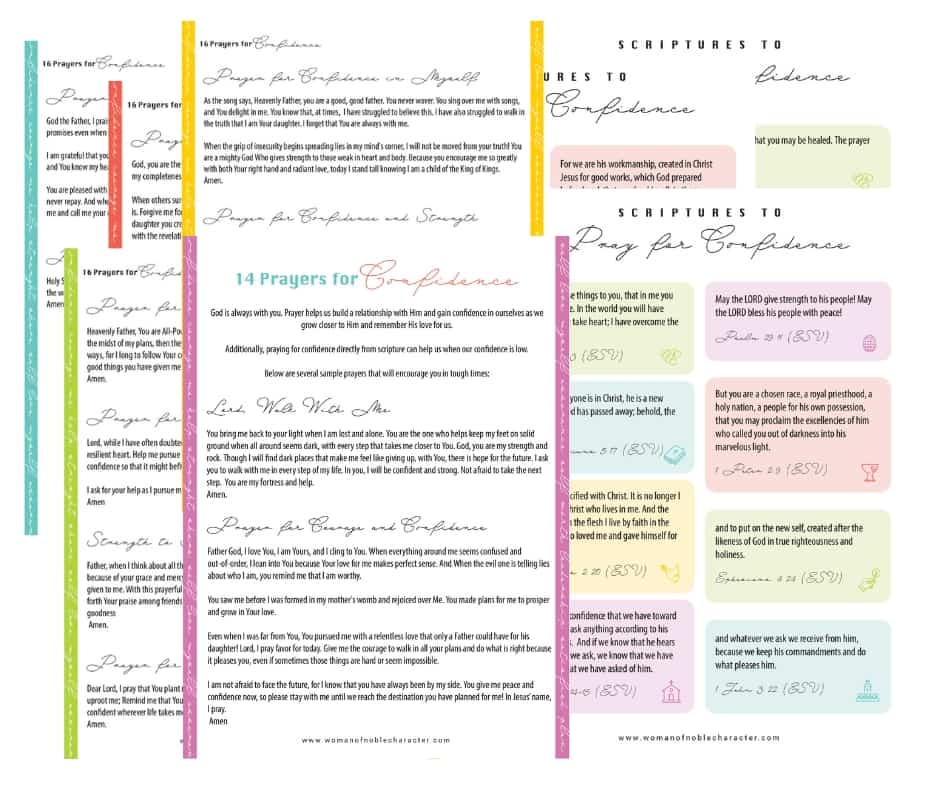 16 Prayers for Confidence
Prayer
God the Father, I prai
promises even when
I am grateful that you
and You know my he
You are pleased with
never repay. And whe
me and call me your
Holy S
the w
Amen
16 Prayers for
Praye
God, you are the
my completenes
When others sur
is. Forgive me fo
daughter you cre
with the revelati
16 Prayers for Confidence
Prayer for Confidence in Myself
As the song says, Heavenly Father, you are a good, good father. You never waver. You sing over me with songs,
and You delight in me. You know that, at times, I have struggled to believe this. I have also struggled to walk in
the truth that I am Your daughter. I forget that You are always with me.
When the grip of insecurity begins spreading lies in my mind's corner, I will not be moved from your truth! You
are a mighty God Who gives strength to those weak in heart and body. Because you encourage me so greatly
with both Your right hand and radiant love, today I stand tall knowing I am a child of the King of Kings.
Amen.
Prayer for Confidence and Strength
16 Prayers for Confid
Prayer for
Heavenly Father, You are All-Po
the midst of my plans, then the
ways, for I long to follow Your c
good things you have given me
Amen.
Prayer for
Lord, while I have often doubte
resilient heart. Help me pursue
confidence so that it might bef
I ask for your help as I pursue m
Amen
Strength to
Father, when I think about all th
because of your grace and mer
given to me. With this prayerful
forth Your praise among friends
goodness
Amen.
Prayer for
Dear Lord, I pray that You plant
uproot me; Remind me that You
confident wherever life takes m
Amen.
14 Prayers for Confidence
God is always with you. Prayer helps us build a relationship with Him and gain confidence in ourselves as we
grow closer to Him and remember His love for us.
Additionally, praying for confidence directly from scripture can help us when our confidence is low.
Below are several sample prayers that will encourage you in tough times:
Lord, Walk With Me
You bring me back to your light when I am lost and alone. You are the one who helps keep my feet on solid
ground when all around seems dark, with every step that takes me closer to You. God, you are my strength and
rock. Though I will find dark places that make me feel like giving up, with You, there is hope for the future. I ask
you to walk with me in every step of my life. In you, I will be confident and strong. Not afraid to take the next
step. You are my fortress and help.
Amen.
Prayer for Courage and Confidence
Father God, I love You, I am Yours, and I cling to You. When everything around me seems confused and
out-of-order, I lean into You because Your love for me makes perfect sense. And When the evil one is telling lies
about who I am, you remind me that I am worthy.
You saw me before I was formed in my mother's womb and rejoiced over Me. You made plans for me to prosper
and grow in Your love.
Even when I was far from You, You pursued me with a relentless love that only a Father could have for his
daughter! Lord, I pray favor for today. Give me the courage to walk in all your plans and do what is right because
it pleases you, even if sometimes those things are hard or seem impossible.
I am not afraid to face the future, for I know that you have always been by my side. You give me peace and
confidence now, so please stay with me until we reach the destination you have planned for me! In Jesus' name,
I pray.
Amen
www.womanofnoblecharacter.com
SCRIPTURES TO
fidence
hat you may be healed. The prayer
URES TO
Confidence
For we are his workmanship, created in Christ
Jesus for good works, which God prepared
SCRIPTURES TO
Pray for Confidence
e things to you, that in me you
e. In the world you will have
take heart; I have overcome the
(ESV)
yone is in Christ, he is a new
d has passed away; behold, the
5:17 (ESV)
cified with Christ. It is no longer I
hrist who lives in me. And the
the flesh I live by faith in the
o loved me and gave himself for
2:20 (ESV)
confidence that we have toward
ask anything according to his
. And if we know that he hears
we ask, we know that we have
at we have asked of him.
14-15 (ESV)
May the LORD give strength to his people! May
the LORD bless his people with peace!
Psalm 29:11 (ESV)
But you are a chosen race, a royal priesthood, a
holy nation, a people for his own possession,
that you may proclaim the excellencies of him
who called you out of darkness into his
marvelous light.
1 Peter 2:9 (ESV)
and to put on the new self, created after the
likeness of God in true righteousness and
holiness.
Ephesians 4:24 (ESV)
and whatever we ask we receive from him,
because we keep his commandments and do
what pleases him.
1 John 3:22 (ESV)
www.womanofnoblecharacter.com